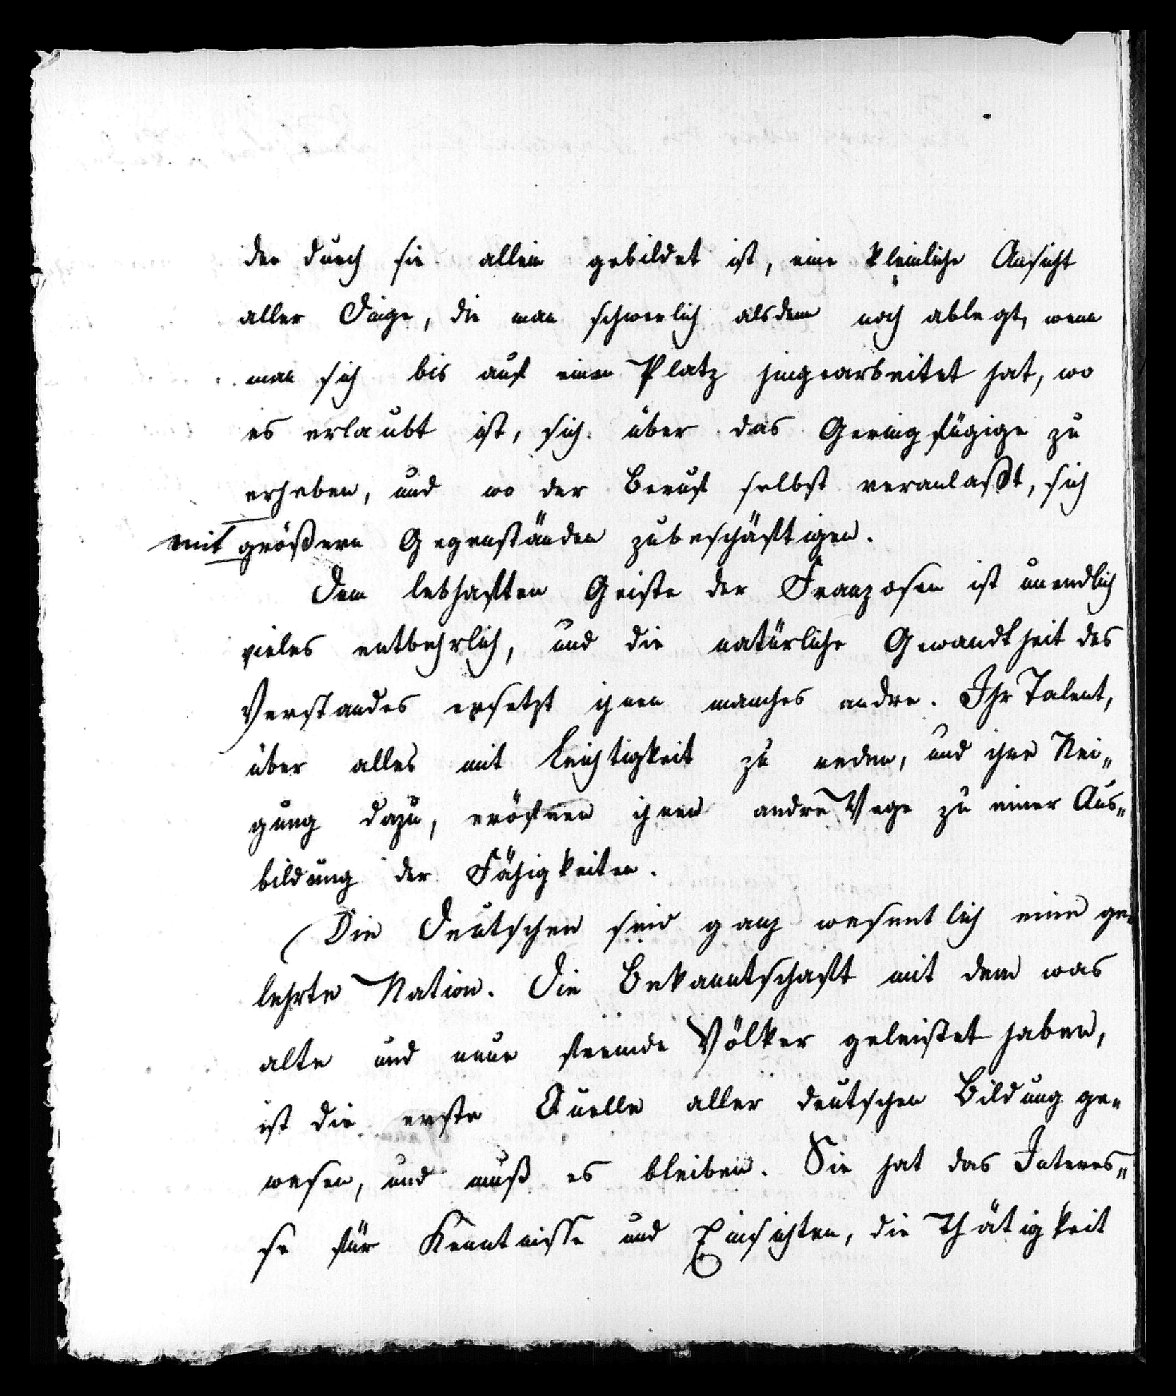 der durch sie allein gebildet ist, eine kleinliche Ansicht
aller Dinge, die man schwerlich alsdenn noch ablegt, wenn
man sich bis auf einen Platz hingearbeitet hat, wo
es erlaubt ist, sich über das Geringfügige zu
erheben, und wo der Beruf selbst veranlaßt, sich
mit größern Gegenständen zubeschäftigen.
Dem lebhaften Geiste der Franzosen ist unendlich
vieles entbehrlich, und die natürliche Gewandtheit des
Verstandes ersetzt ihnen manches andre. Ihr Talent,
über alles mit Leichtigkeit zu reden, und ihre Nei„
gung dazu, eröfnen ihnen andre Wege zu einer Aus„
bildung der Fähigkeiten.
Die Deutschen sind ganz wesentlich eine ge„
lehrte Nation. Die Bekanntschaft mit dem was
alte und neue fremde Völker geleistet haben,
ist die erste Quelle aller deutschen Bildung ge„
wesen, und muß es bleiben. Sie hat das Interes„
se für Kenntnisse und Einsichten, die Thätigkeit